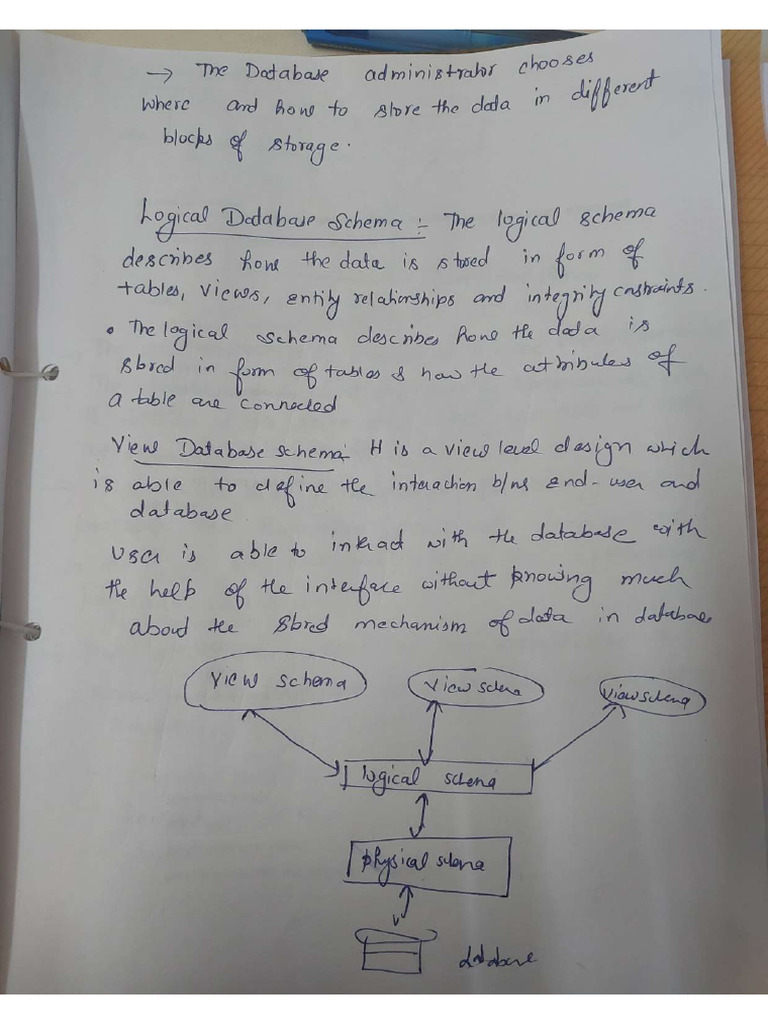 → The Database administrator chooses
where and how to store the data in different
blocks of storage.
Logical Database Schema :- The logical schema
describes how the data is stored in form of
tables, views, entity relationships and integrity constraints.
• The logical schema describes how the data is
stored in form of tables & how the attributes of
a table are connected
View Database schema:- It is a view level design which
is able to define the interaction b/w end-user and
database
user is able to interact with the database with
the help of the interface without knowing much
about the stored mechanism of data in database
view schema
view schema
view schema
logical schema
physical schema
database